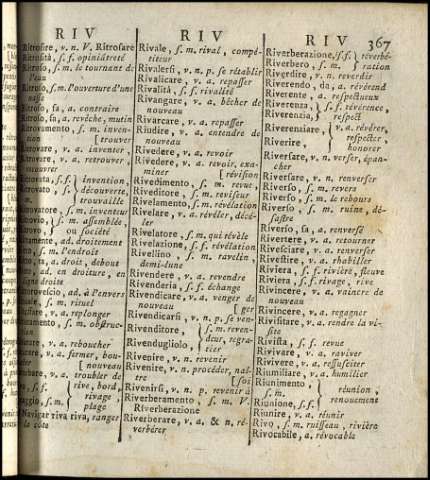 RIV RIV RIV 367
Ritrosire, v. n. V. Ritrosare
Ritrosità, s. f. opiniâtreté
Ritroso, s. m. le tournant de
l'eau
Ritroso, s. m. l'ouverture d'une
Ritroso, sa, a. contraire
Ritroso, sa, a. revêche, mutin
Ritrovamento, s. m. inven-
tion [trouver
Ritrovare, v. a. inventer
Ritrovare, v. a. retrouver,
trouver
s. f. invention,
découverte,
trouvaille
Ritrovatore, s. m. inventeur
s. m. assemblée,
ou société
a. droitement
l'endroit
a. droit, debout
ad. en droiture, en
ligne droite
ad. à l'envers
s. m. rituel
v. a. replonger
s. m. obstruc-
v. a. reboucher
v. a. fermer, bou-
[nouveau
v. a. troubler de
s. f. rive, bord,
rivage,
s. m. plage
Navigar riva riva, ranger
la côte
Rivale, s. m. rival, compé-
titeur
Rivalersi, v. n. p. se rétablir
Rivalicare, v. a. repasser
Rivalità, s. f. rivalité
Rivangare, v. a. bêcher de
nouveau
Rivarcare, v. a. repasser
Riudire, v. a. entendre de
nouveau
Rivedere, v. a. revoir
Rivedere, v. a. revoir, exa-
miner [révision
Rivedimento, s. m. revue,
Riveditore, s. m. reviseur
Rivelamento, s. m. révélation
Rivelare, v. a. révéler, décé-
ler
Rivelatore, s. m. qui révèle
Rivelazione, s. f. révélation
Rivellino, s. m. ravelin,
demi-lune
Rivendere, v. a. revendre
Rivenderia, s. f. échange
Rivendicare, v. a. venger de
nouveau [ger
Rivendicarsi, v. n. p. se ven-
Rivenditore, s. m. reven-
deur, regra-
Rivendugliolo, tier
Rivenire, v. n. revenir
Rivenire, v. n. procéder, naî-
tre [soi
Rivenirsi, v. n. p. revenir à
Riverberamento, s. m. V.
Riverberazione
Riverberare, v. a. & n. ré-
verbérer
Riverberazione, s. f. réverbé-
Riverbero, s. m. ration
Riverdire, v. n. reverdir
Riverendo, da, a. révérend
Riverente, a. respectueux
Riverenza, s. f. révérence,
Riverenzia, respect
Riverenziare, v. a. révérer,
respecter,
Riverire, honorer
Riversare, v. n. verser, épan-
cher
Riversare, v. n. renverser
Riverso, s. m. revers
Riverso, s. m. le rebours
Riverso, s. m. ruine, dé-
sastre
Riverso, sa, a. renversé
Rivertere, v. a. retourner
Rivesciare, v. a. renverser
Rivestire, v. a. rhabiller
Riviera, s. f. rivière, fleuve
Riviera, s. f. rivage, rive
Rivincere, v. a. vaincre de
nouveau
Rivincere, v. a. regagner
Rivisitare, v. a. rendre la vi-
site
Rivista, s. f. revue
Rivivare, v. a. raviver
Rivivere, v. a. ressusciter
Riumiliare, v. a. humilier
Riunimento, s. m. réunion,
renouement
Riunione, s. f.
Riunire, v. a. réunir
Rivo, s. m. ruisseau, rivière
Rivocabile, a. révocable